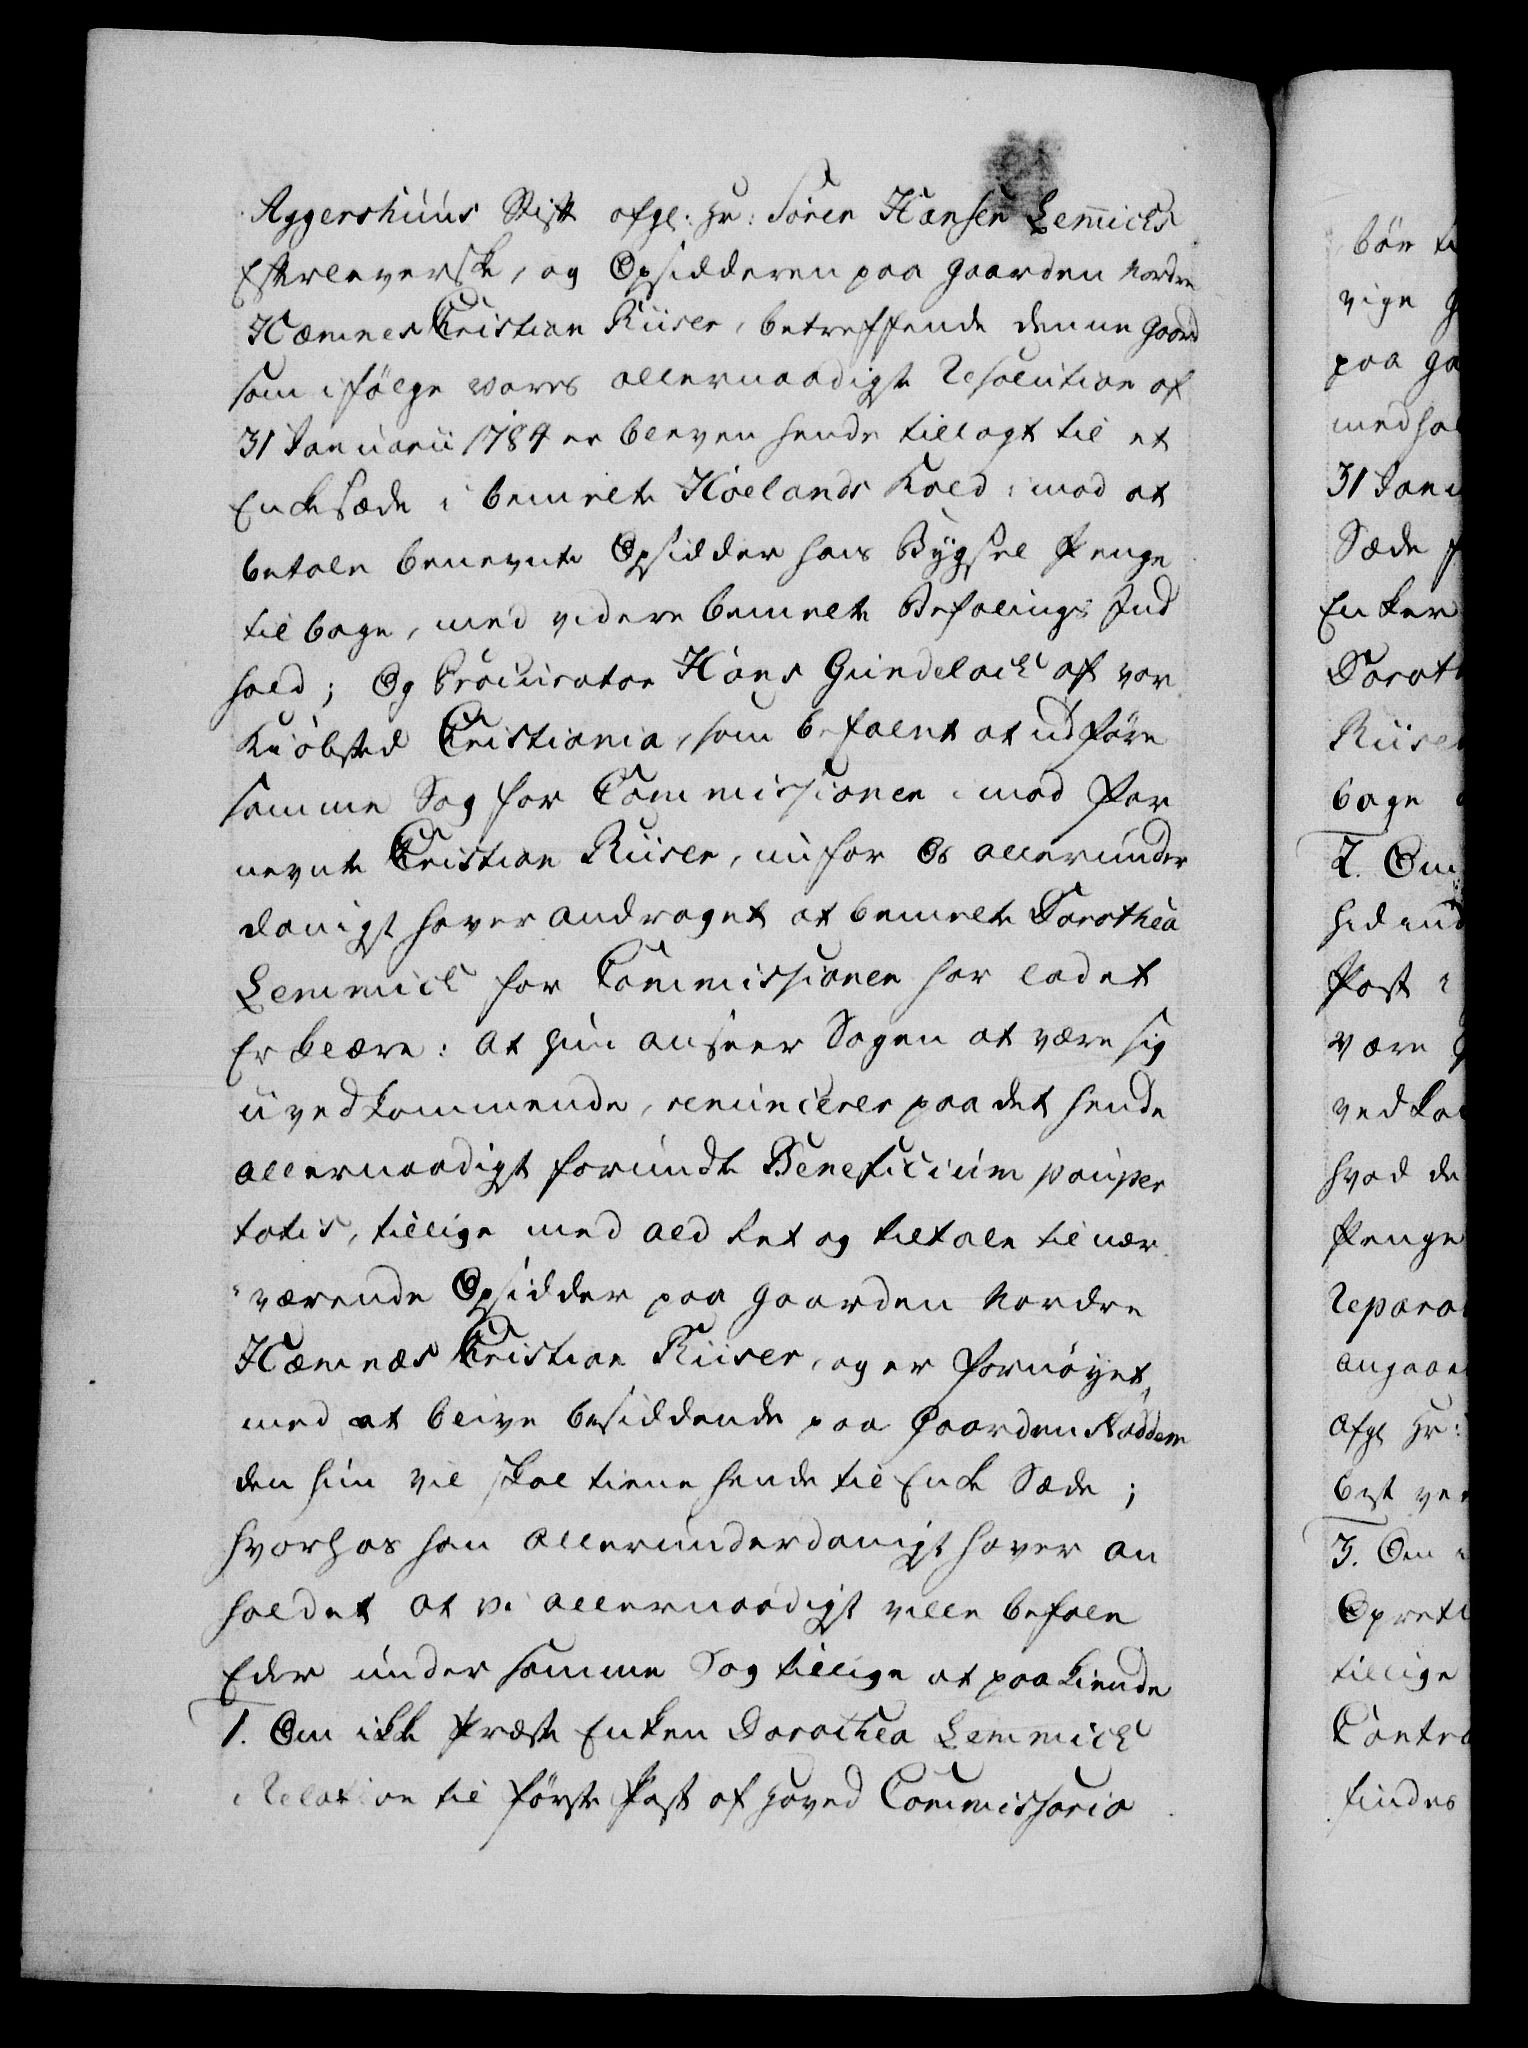 Aggershuus Stift afgl: Hr: Sören Hansen Lemichs
Efterleverske, og Opsidderen paa Gaarden Nordre
Hæmnes Christian Riiser, betreffende denne Gaard
som ifölge vores allernaadigste Resolution af
31 Januarii 1784 er bleven hende tillagt til et
Enkesæde i bemelte Höelands Kald imod at
betale benevnte Opsidder hans Bygsel Penge
tilbage, med videre bemelte Befalings Ind
hold; Og Procurator Hans Gundelach af vor
Kiöbsted Christiania, som befalet at udföre
samme Sag for Commissionen imod For
nevnte Christian Riiser, nu for Os allerunder
danigst haver andraget at bemelte Dorothea
Lemmich for Commissionen har ladet
Erklære: At hun anseer Sagen at være sig
uvedkommende, renuncierer paa det hende
allernaadigst forundte Beneficium pauper
tatis, tillige med ald Ret og tiltale til nær
værende Opsidder paa Gaarden Nordre
Hæmnæs Christian Riiser, og er fornöyet,
med at blive besiddende paa Gaarden
den hun vil skal tiene hende til Enke Sæde;
hvorhos han allerunderdanigst haver an
holdet at vi allernaadigst ville befale
Eder under samme Sag tillige at paakiende
1. Om ikke Præste Enken Dorothea Lemmich
i Relation til förste Post af Hoved Commissorio
bör ti
vige G
paa Ga
medhol
31 Janu
Sæde
Enker
Doroth
Riiser
bage
2. Om
hidind
Post i
være
vedko
hvad de
Penge
Reparat
angaae
Afgl Hr:
best ve
3. Om
Oprett
tillige
Contra
findes